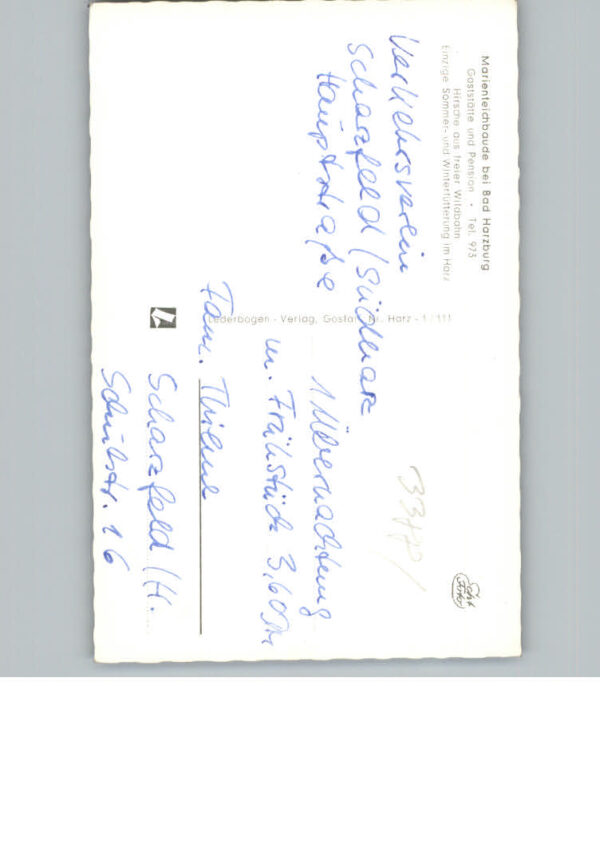 Marienteichbaude bei Bad Harzburg
Gaststätte und Pension • Tel. 973
Hirsche aus freier Wildbahn
Einzige Sommer- und Winterfütterung im Harz
Verkehrsverein
Scharzfeld / Südharz
Hauptstraße
1 Übernachtung
m. Frühstück 3,60 DM
Fam. Thieme
Scharzfeld / H.
Schulstr. 16
Lederbogen - Verlag, Goslar Nr. Harz - 1/111
Echt
Foto